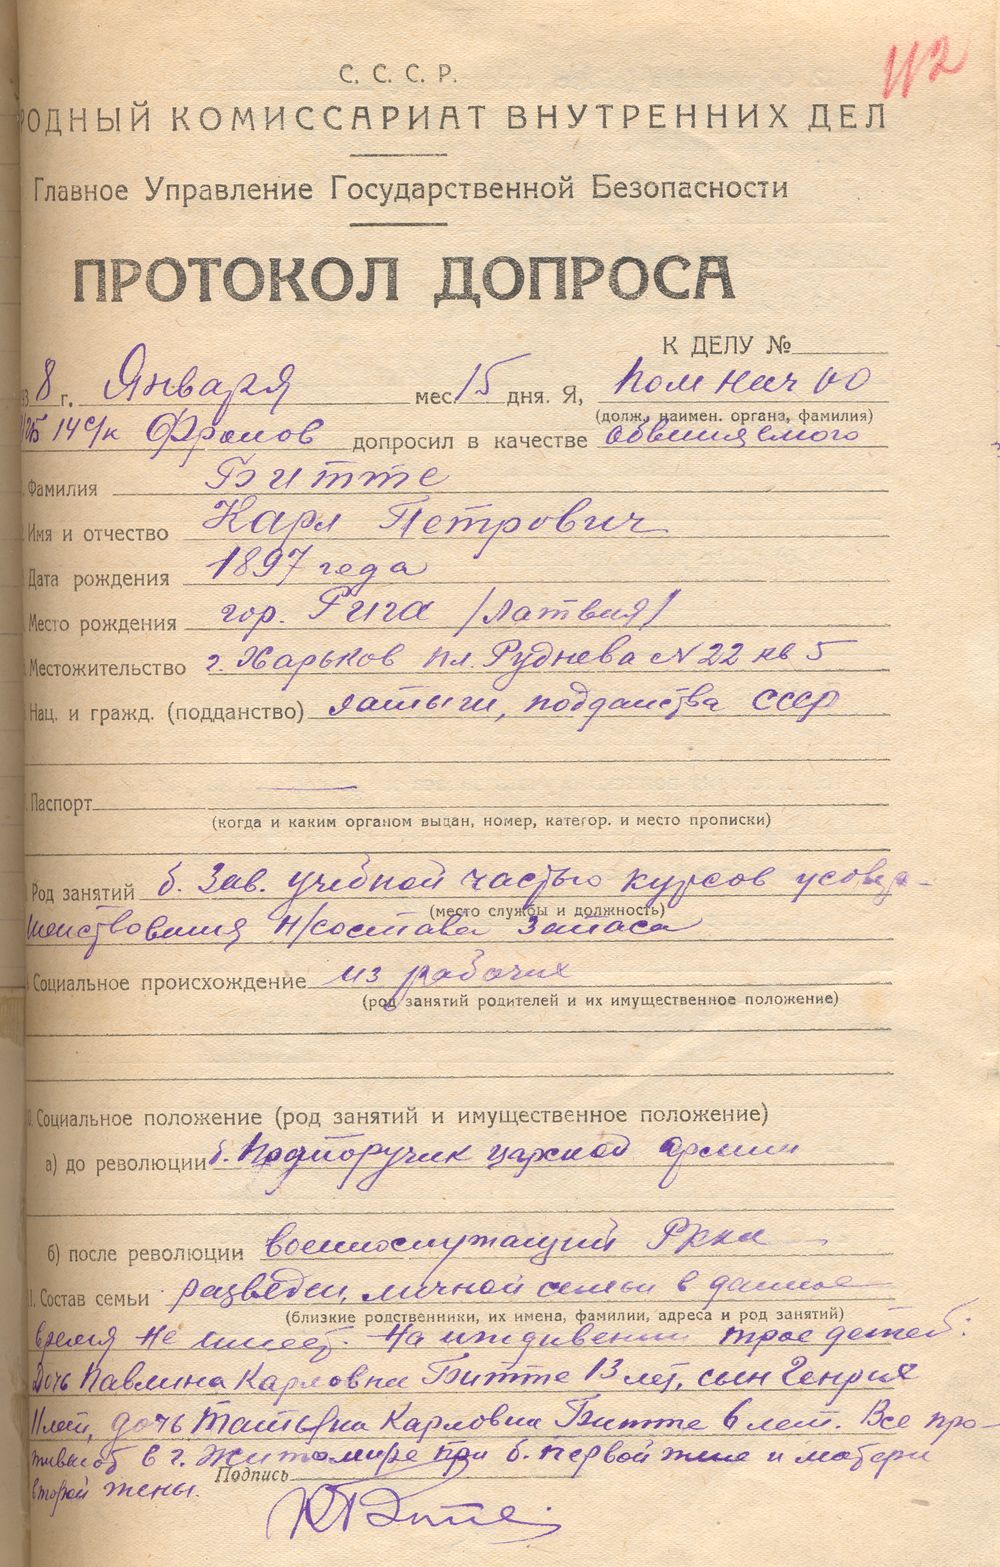 112
С. С. С. Р.
РОДНЫЙ КОМИССАРИАТ ВНУТРЕННИХ ДЕЛ
Главное Управление Государственной Безопасности
ПРОТОКОЛ ДОПРОСА
К ДЕЛУ №
8 г. Января мес 15 дня. Я, Пом нач ОО
(долж., наимен. органа, фамилия)
14 с/к Фролов допросил в качестве обвиняемого
Фамилия Битте
Имя и отчество Карл Петрович
Дата рождения 1897 года
Место рождения гор. Рига /Латвия/
Местожительство г. Харьков пл. Руднева N 22 кв 5
Нац. и гражд. (подданство) латыш, подданства СССР
Паспорт
(когда и каким органом выдан, номер, категор. и место прописки)
Род занятий б. Зав. учебной частью курсов усовер-
(место службы и должность)
шенствования н/состава запаса
Социальное происхождение из рабочих
(род занятий родителей и их имущественное положение)
Социальное положение (род занятий и имущественное положение)
а) до революции б. Подпоручик царской армии
б) после революции военнослужащий РККА
Состав семьи разведен, личной семьи в данное
(близкие родственники, их имена, фамилии, адреса и род занятий)
время не имеет. На иждивении трое детей:
Дочь Павлина Карловна Битте 13 лет, сын Генрих
11 лет, дочь Татьяна Карловна Битте 6 лет. Все про-
живают в г. Житомире при б. первой жене и матери
второй жены.
Подпись
КПБитте